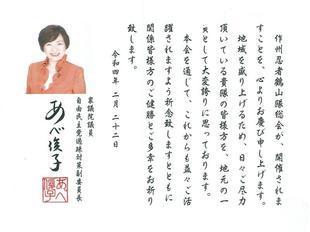 作州忍者鶴山隊総会が、開催されま
すことを、心よりお慶び申し上げます。
地域を盛り上げるため、日々ご尽力
頂いている貴隊の皆様方を、地元の一
員として大変誇りに思っております。
本会を通じて、これからも益々ご活
躍されますよう祈念致しますとともに
関係皆様方のご健勝とご多幸をお祈り
致します。
令和四年 二月 二十二日
衆議院議員
自由民主党選挙対策副委員長
あべ俊子